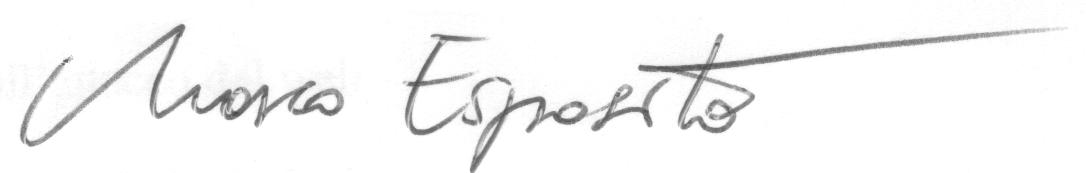 Marco Esposito